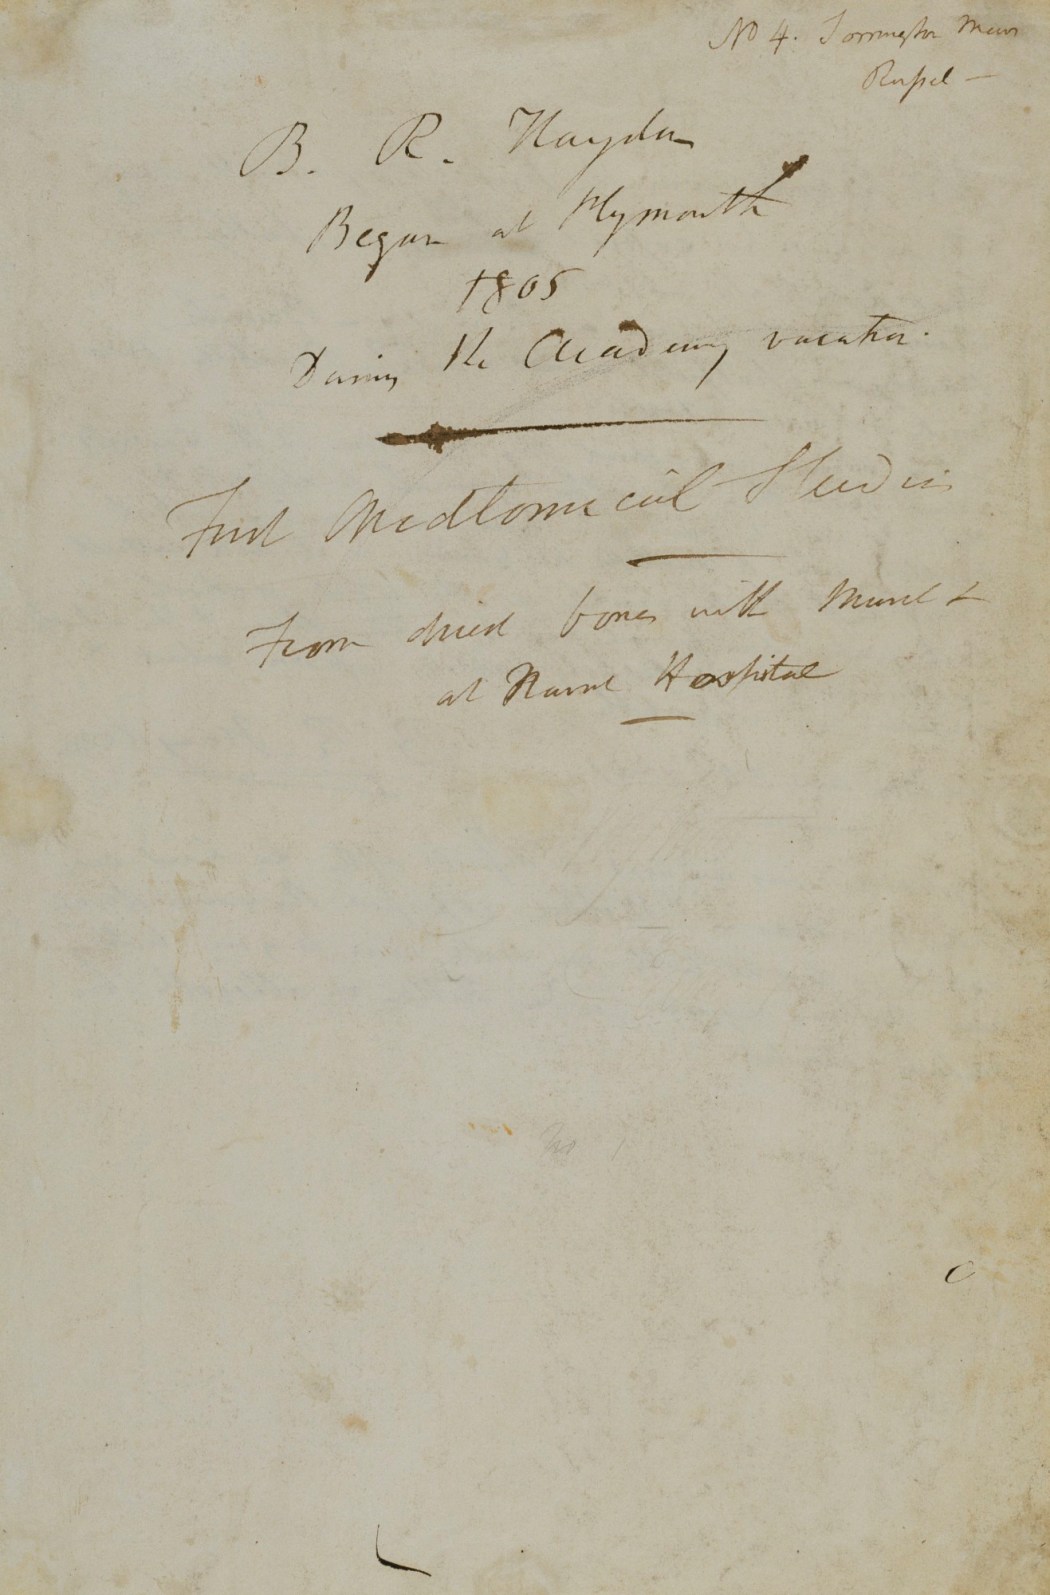 No 4. Torrington Mews
Russel —
B. R. Haydon
Began at Plymouth
1805
During the Academy vacation.
First Anatomical Studies
From dried bones with
at Naval Hospital